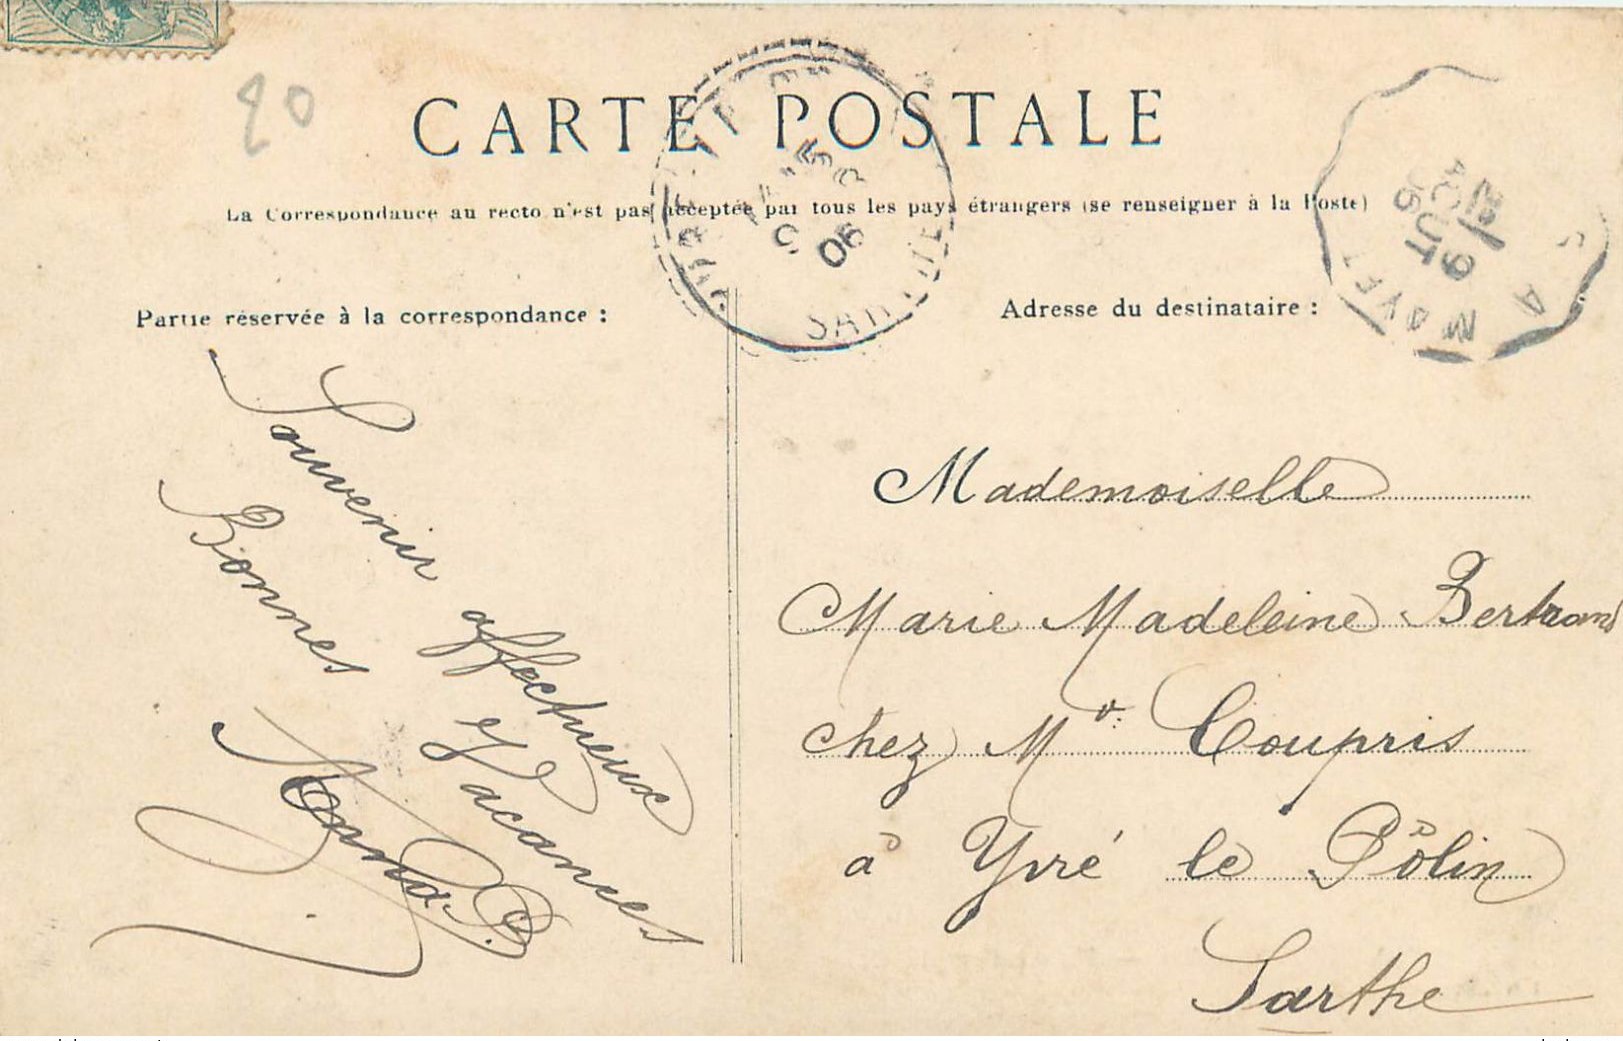 20
CARTE POSTALE
La Correspondance au recto n'est pas acceptée par tous les pays étrangers (se renseigner à la Poste)
Partie réservée à la correspondance :
Souvenir affectueux
Bonnes Vacances
Adresse du destinataire :
Mademoiselle
Marie Madeleine Bertrand
chez Mr. Coupris
à Yvré le Pôlin
Sarthe
06
SARTHE
9
AOUT
06
MAYET